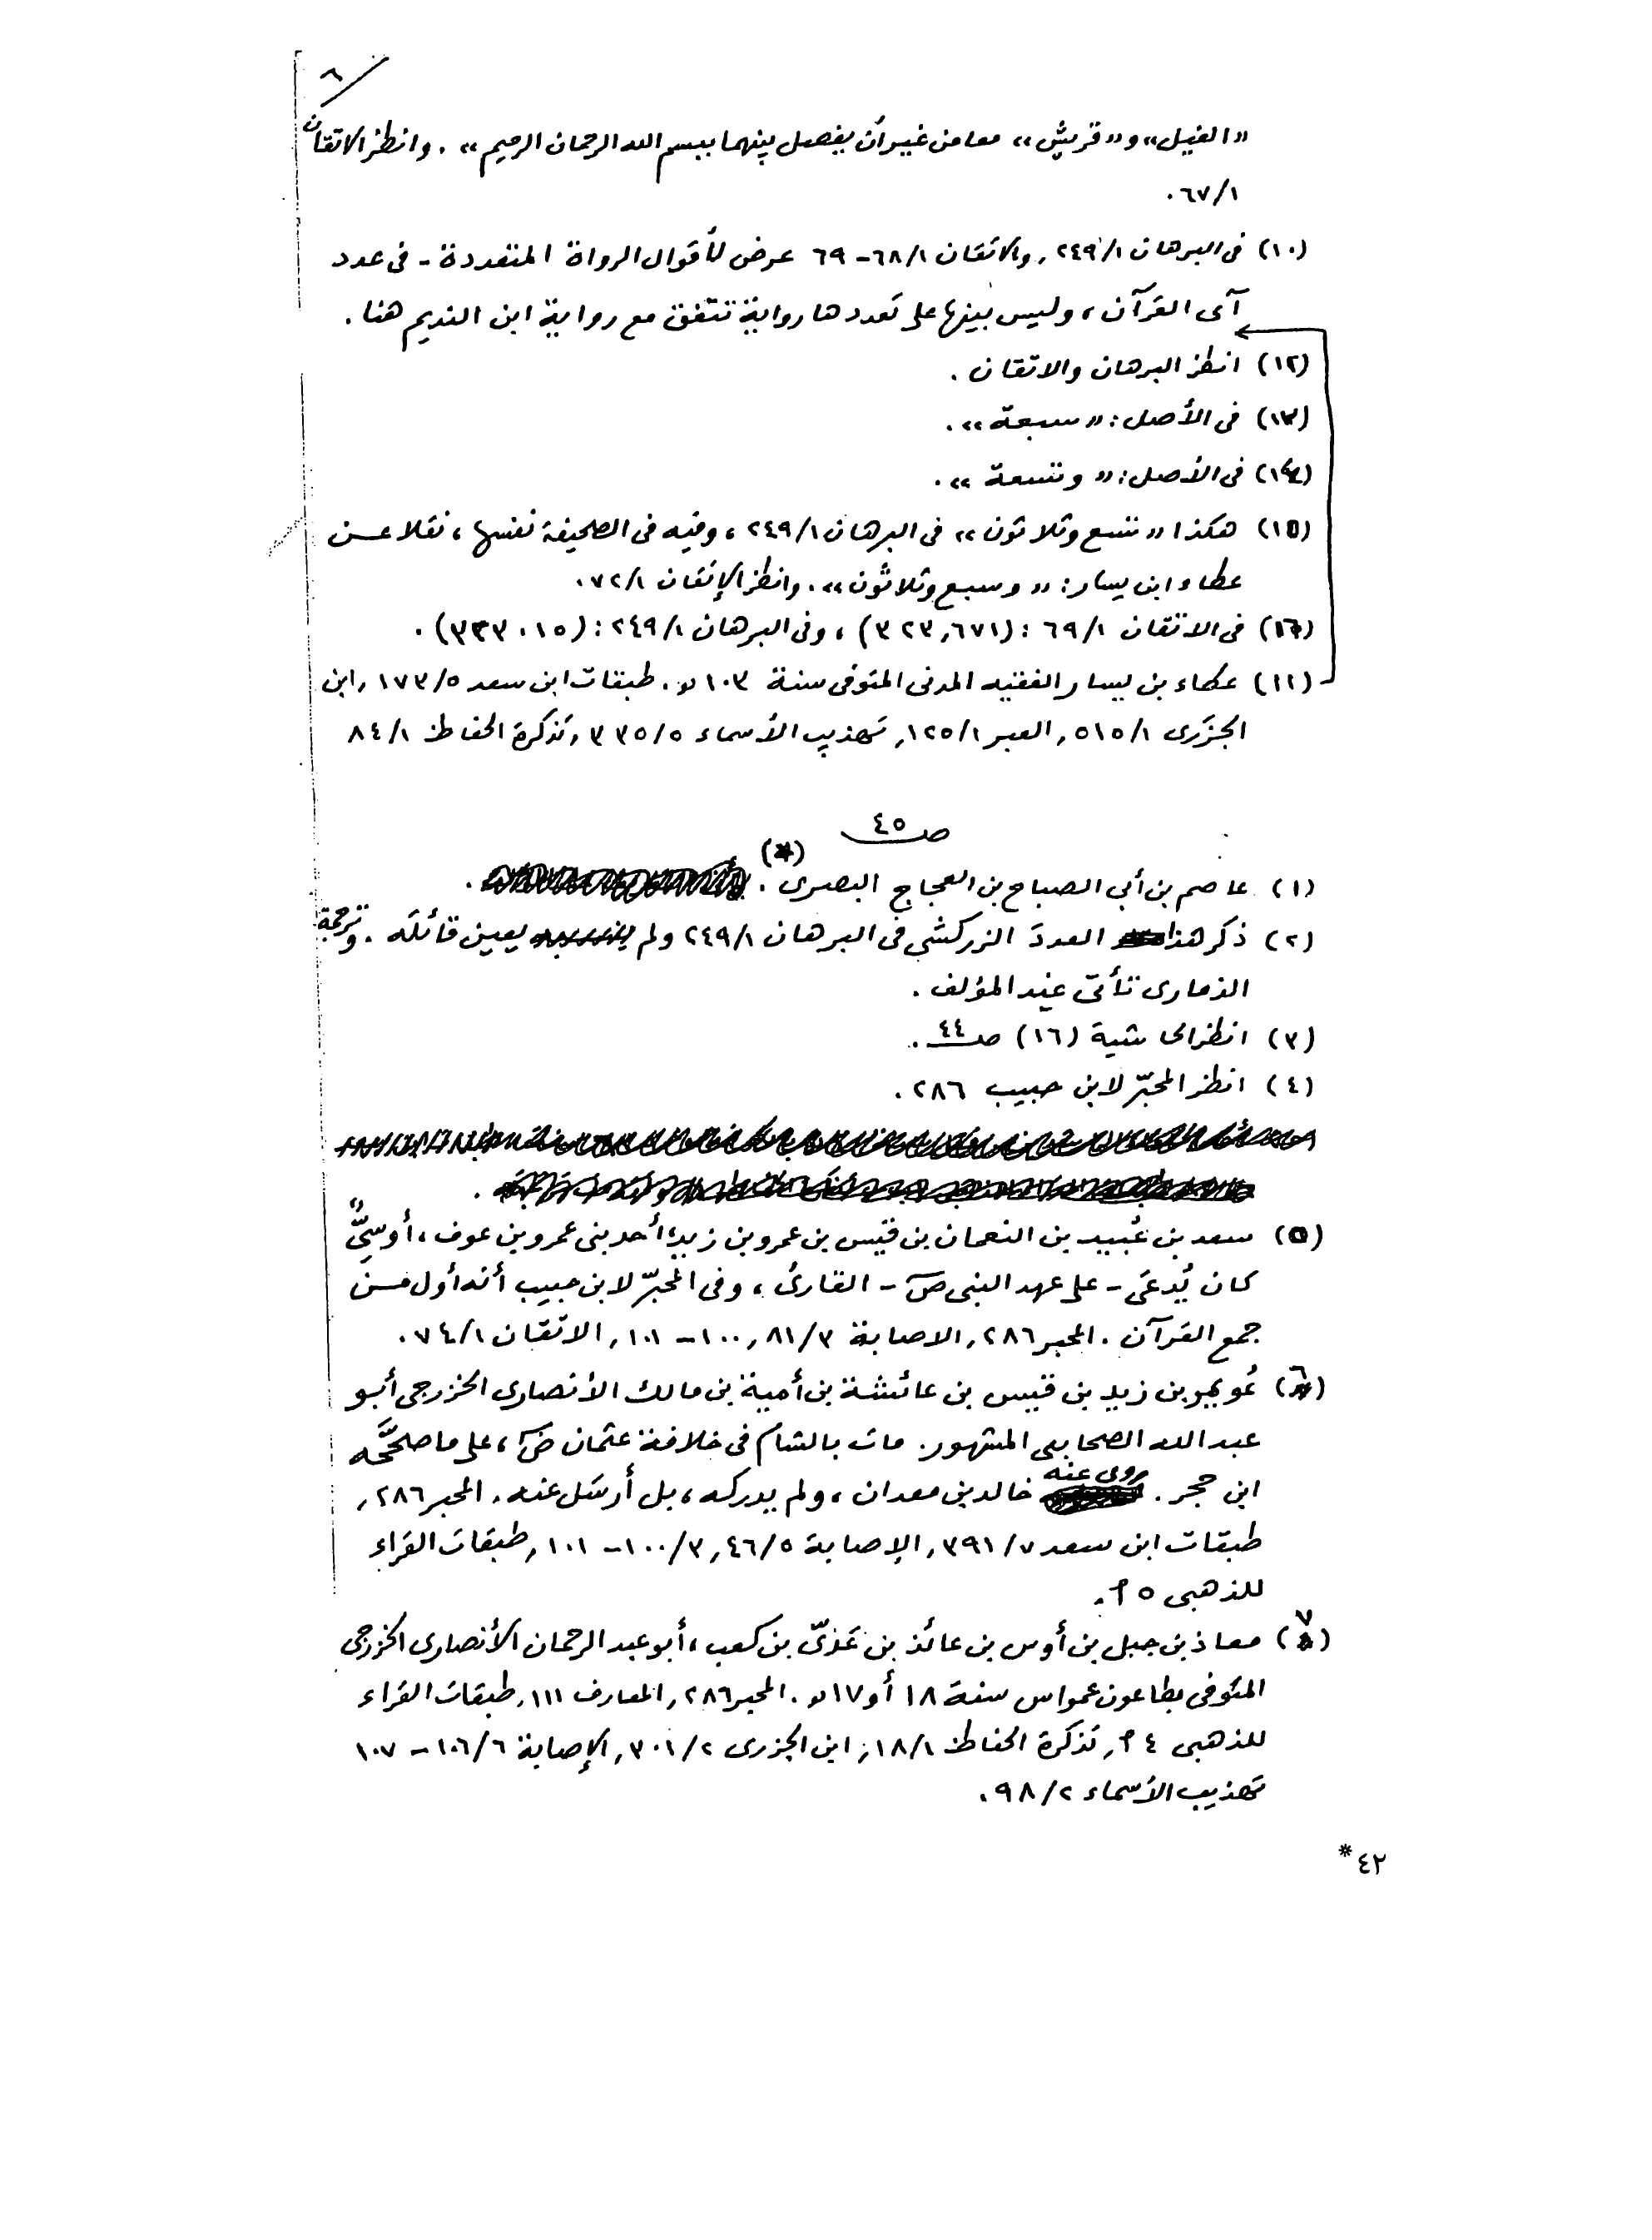 ٦
«الفيل» و«قريش» معا من غير أن يفصل بينهما ببسم الله الرحمان الرحيم». وانظر الاتقان
٦٧/١.
(١٠) فى البرهان ٢٤٩/١, والاتقان ٦٨/١ – ٦٩ عرض لأقوال الرواة المتعددة – فى عدد
آى القرآن، وليس بينها على تعددها رواية تتفق مع رواية ابن النديم هنا.
(١٢) انظر البرهان والاتقان.
(١٣) فى الأصل: «سبعة».
(١٤) فى الأصل: «وتسعة».
(١٥) هكذا «تسع وثلاثون» فى البرهان ٢٤٩/١، وفيه فى الصحيفة نفسها، نقلا عن
عطاء ابن يسار: «وسبع وثلاثون». وانظر الإتقان ٧٢/١.
(١٦) فى الاتقان ٦٩/١: (٣٢٣,٦٧١)، وفى البرهان ٢٤٩/١: (٣٣٣٠١٥).
(١١) عطاء بن يسار الفقيه المدنى المتوفى سنة ١٠٣ ه. طبقات ابن سعد ١٧٣/٥, ابن
الجزرى ٥١٥/١, العبر ١٢٥/١, تهذيب الأسماء ٣٣٥/٥, تذكرة الحفاظ ٨٤/١
ص ٤٥
(١) عاصم بن أبى الصباح بن العجاج البصرى. (*)
(٢) ذكر هذا العدد الزركشى فى البرهان ٢٤٩/١ ولم يعين قائله. وترجمة
الذمارى تأتى عند المؤلف.
(٣) انظر الحاشية (١٦) ص ٤٤.
(٤) انظر المحبّر لابن حبيب ٢٨٦.
(٥) سعد بن عُبيد بن النعمان بن قيس بن عمرو بن زيد، أحد بنى عمرو بن عوف، أوسىٌّ
كان يُدعَى – على عهد النبى ص – القارئ، وفى المحبّر لابن حبيب أنه أول من
جمع القرآن. المحبر ٢٨٦, الاصابة ٨١/٣, ١٠٠ – ١٠١, الاتقان ٧٤/١.
(٦) عُويمر بن زيد بن قيس بن عائشة بن أمية بن مالك الأنصارى الخزرجى أبو
عبد الله الصحابى المشهور. مات بالشام فى خلافة عثمان ض، على ما صححّه
ابن حجر. روى عنه خالد بن معدان، ولم يدركه، بل أرسل عنه. المحبر ٢٨٦,
طبقات ابن سعد ٣٩١/٧, الإصابة ٤٦/٥, ١٠٠/٣ – ١٠١, طبقات القراء
للذهبى ٥ م.
(٧) معاذ بن جبل بن أوس بن عائذ بن عَدىّ بن كعب، أبو عبد الرحمان الأنصارى الخزرجى
المتوفى بطاعون عمواس سنة ١٨ أو ١٧ ه. المحبر ٢٨٦, المعارف ١١١, طبقات القراء
للذهبى ٤ م, تذكرة الحفاظ ١٨/١, ابن الجزرى ٣٠١/٢, الإصابة ١٠٦/٦ – ١٠٧
تهذيب الأسماء ٩٨/٢.
٤٢*